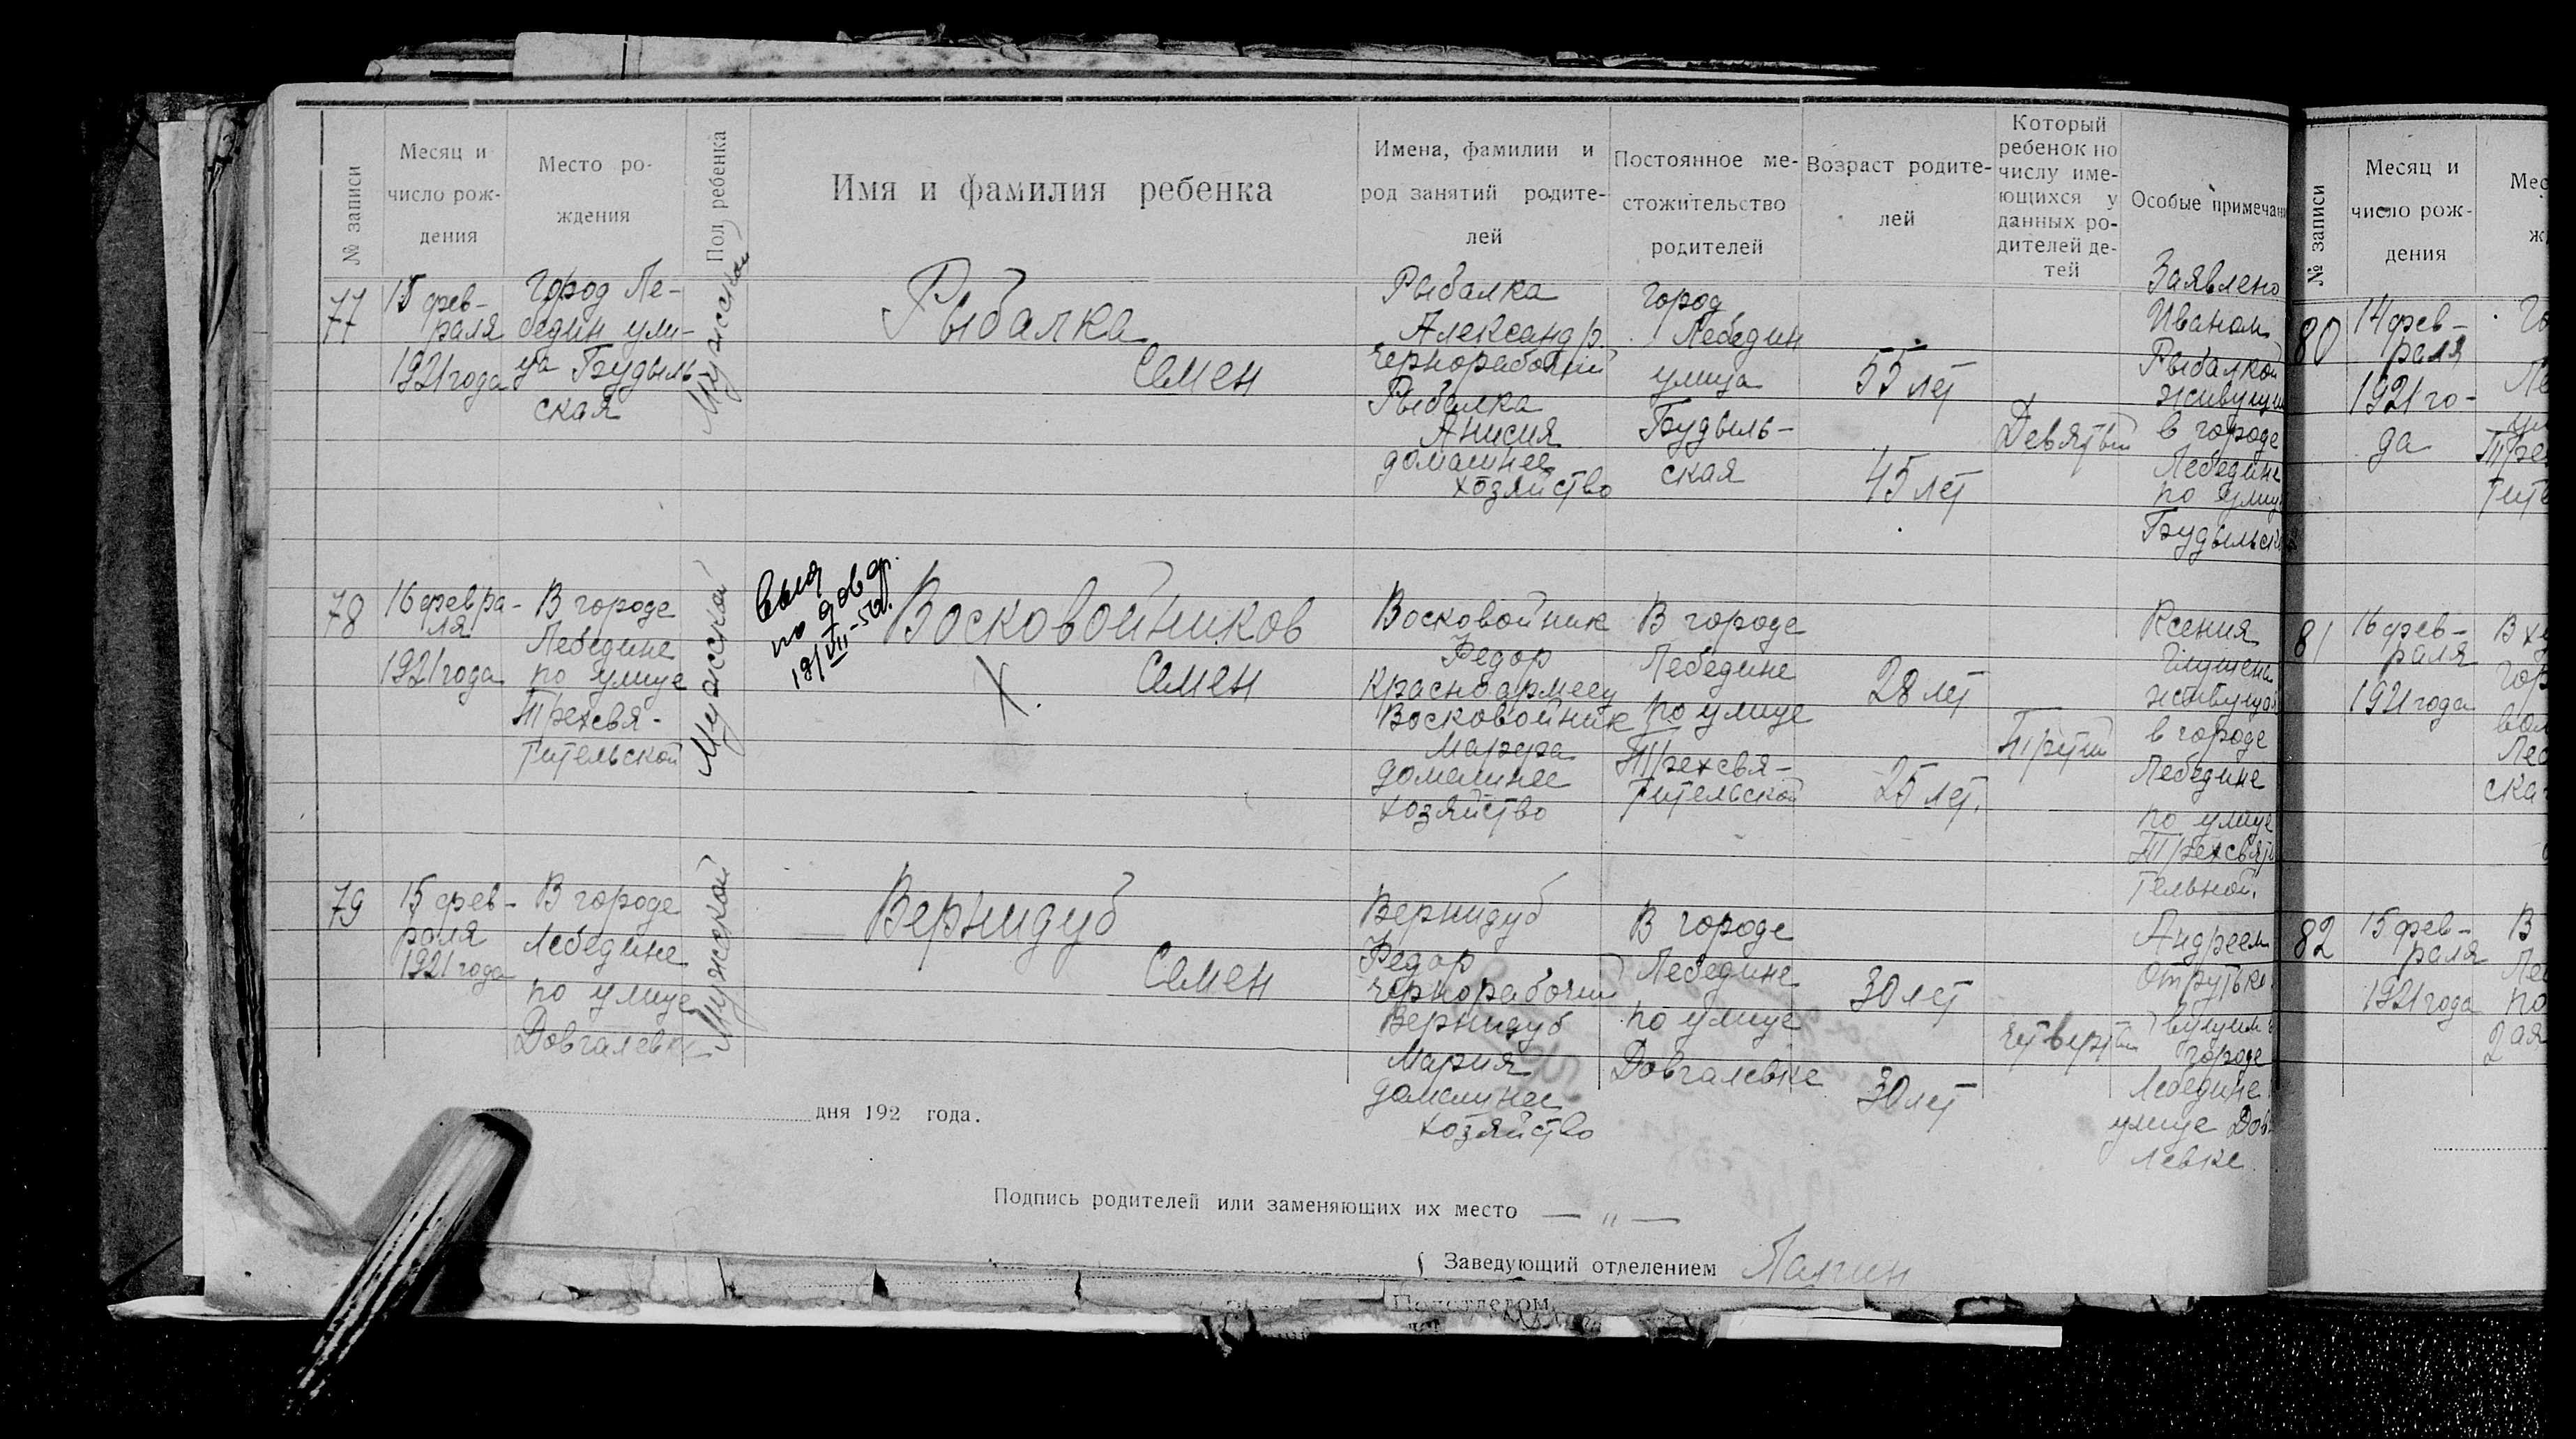 № записи
Месяц и
число рож-
дения
Место ро-
ждения
Пол ребенка
Имя и фамилия ребенка
Имена, фамилии и
род занятий родите-
лей
Постоянное ме-
стожительство
родителей
Возраст родите-
лей
Который
ребенок по
числу име-
ющихся у
данных ро-
дителей де-
тей
Особые примечан
77
15 фев-
раля
1921 года
Город Ле-
бедин ули-
ца Будыль
ская
Мужской
Рыбалка
Семен
Рыбалка
Александр
чернорабочий
Рыбалка
Анисия
домашнее
хозяйство
город
Лебедин
улица
Будыль-
ская
55 лет
45 лет
Девятый
Заявлено
Иваном
Рыбалкой
живущим
в городе
Лебедине
по улице
Будыльской
78
16 февра-
ля
1921 года
В городе
Лебедине
по улице
Трехсвя-
тительской
Мужской
по
18/VII-50
Восковойников
Х.
Семен
Восковойник
Федор
Красноармеец
Восковойник
домашнее
хозяйство
В городе
Лебедине
по улице
Трехсвя-
тительской
28 лет
25 лет.
Третий
Ксения
живущая
в городе
Лебедине
по улице
Трехсвяти
тельной.
79
15 фев-
раля
1921 года
В городе
Лебедине
по улице
Довгалевке
Мужской
Вернидуб
Семен
Вернидуб
Федор
чернорабочий
Вернидуб
Мария
домашнее
хозяйство
В городе
Лебедине
по улице
Довгалевке
30 лет
30 лет
четвертый
Андреем
городе
Лебедине
улице Дов
левке.
дня 192 года.
Подпись родителей или заменяющих их место — „ —
Заведующий отделением
Подотделом
№ записи
Месяц и
число рож-
дения
Мес
ж
80
14 фев-
раля
1921 го-
да
Го
Ле
81
16 фев-
раля
1921 года
В ху
гор
ска
82
15 фев-
раля
1921 года
В
Ле
по